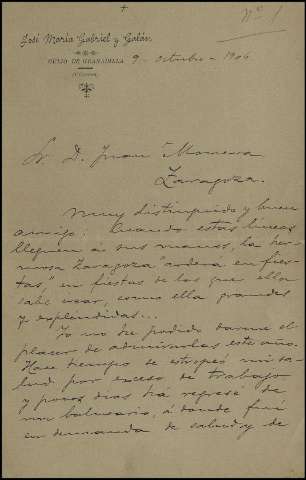 +
Nº 1
José María Gabriel y Galán
GUIJO DE GRANADILLA
(Cáceres)
9 - octubre - 1904
Sr. D. Juan Moneva
Zaragoza.
Muy distinguido y buen
amigo: Cuando estas líneas
lleguen á sus manos, la her-
mosa Zaragoza "arderá en fies-
tas", en fiestas de las que ella
sabe crear, como ella grandes
y espléndidas...
Yo no he podido darme el
placer de admirarlas este año.
Hace tiempo se estropeó mi sa-
lud por exceso de trabajo
y pocos días há regresé de
un balneario, á donde fuí
en demanda de salud y de